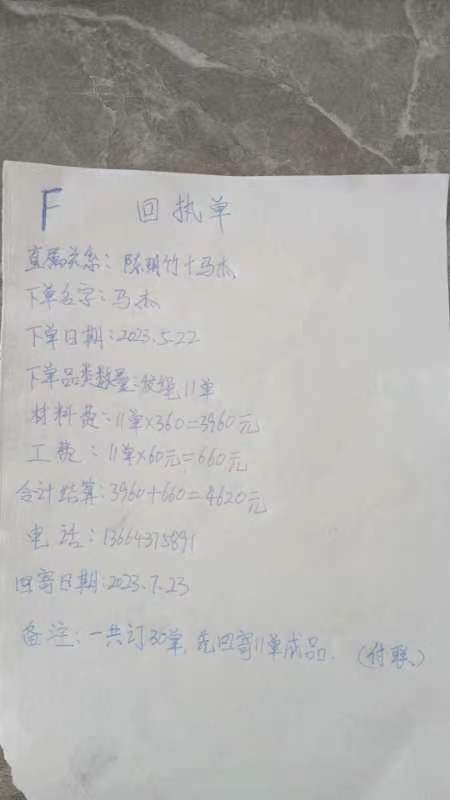 F 回执单
直属关系:陈朝竹+马杰
下单名字:马杰
下单日期:2023.5.22
下单品类数量:发绳11单
材料费:11单×360=3960元
工费:11单×60元=660元
合计结算:3960+660=4620元
电话:13664375891
回寄日期:2023.7.23
备注:一共订30单,先回寄11单成品。(付联)